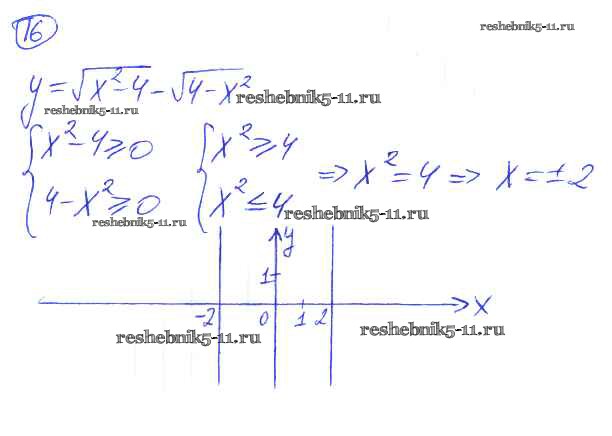 16
reshebnik5-11.ru
y = √(x² - 4) - √(4 - x²)
reshebnik5-11.ru reshebnik5-11.ru
{ x² - 4 ⩾ 0 { x² ⩾ 4
⇒ x² = 4 ⇒ x = ±2
4 - x² ⩾ 0 x² ≤ 4
reshebnik5-11.ru reshebnik5-11.ru
y
1
-2 0 1 2 x
reshebnik5-11.ru reshebnik5-11.ru